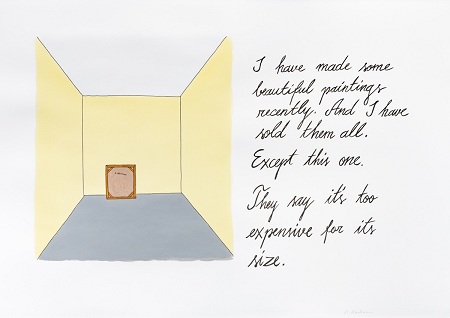 I have made some
beautiful paintings
recently. And I have
sold them all.
Except this one.
They say it's too
expensive for its
size.